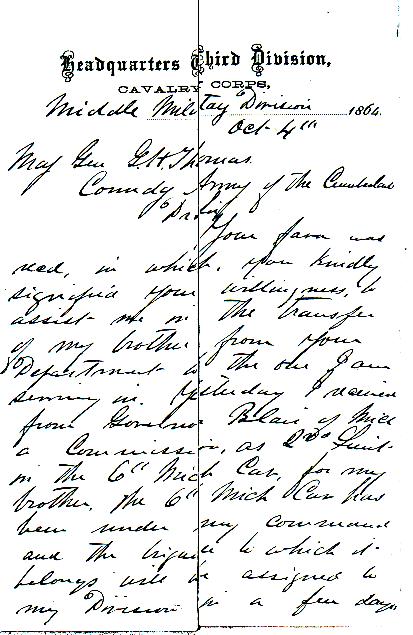 Headquarters Third Division,
CAVALRY CORPS,
Middle Military Division 1864
Oct 4th
Maj Gen G.H. Thomas
Comndg Army of the Cumberland
Dr Sir
Your favor was
recd, in which, you kindly
signified your willingness, to
assist me in the transfer
of my brother from your
Department to the one I am
serving in. Yesterday I received
from Governor Blair of Mich
a Commission, as 2nd Lieut
in the 6th Mich Cav, for my
brother, the 6th Mich Cav has
been under my command
and the brigade to which it
belongs will be assigned to
my Division in a few days